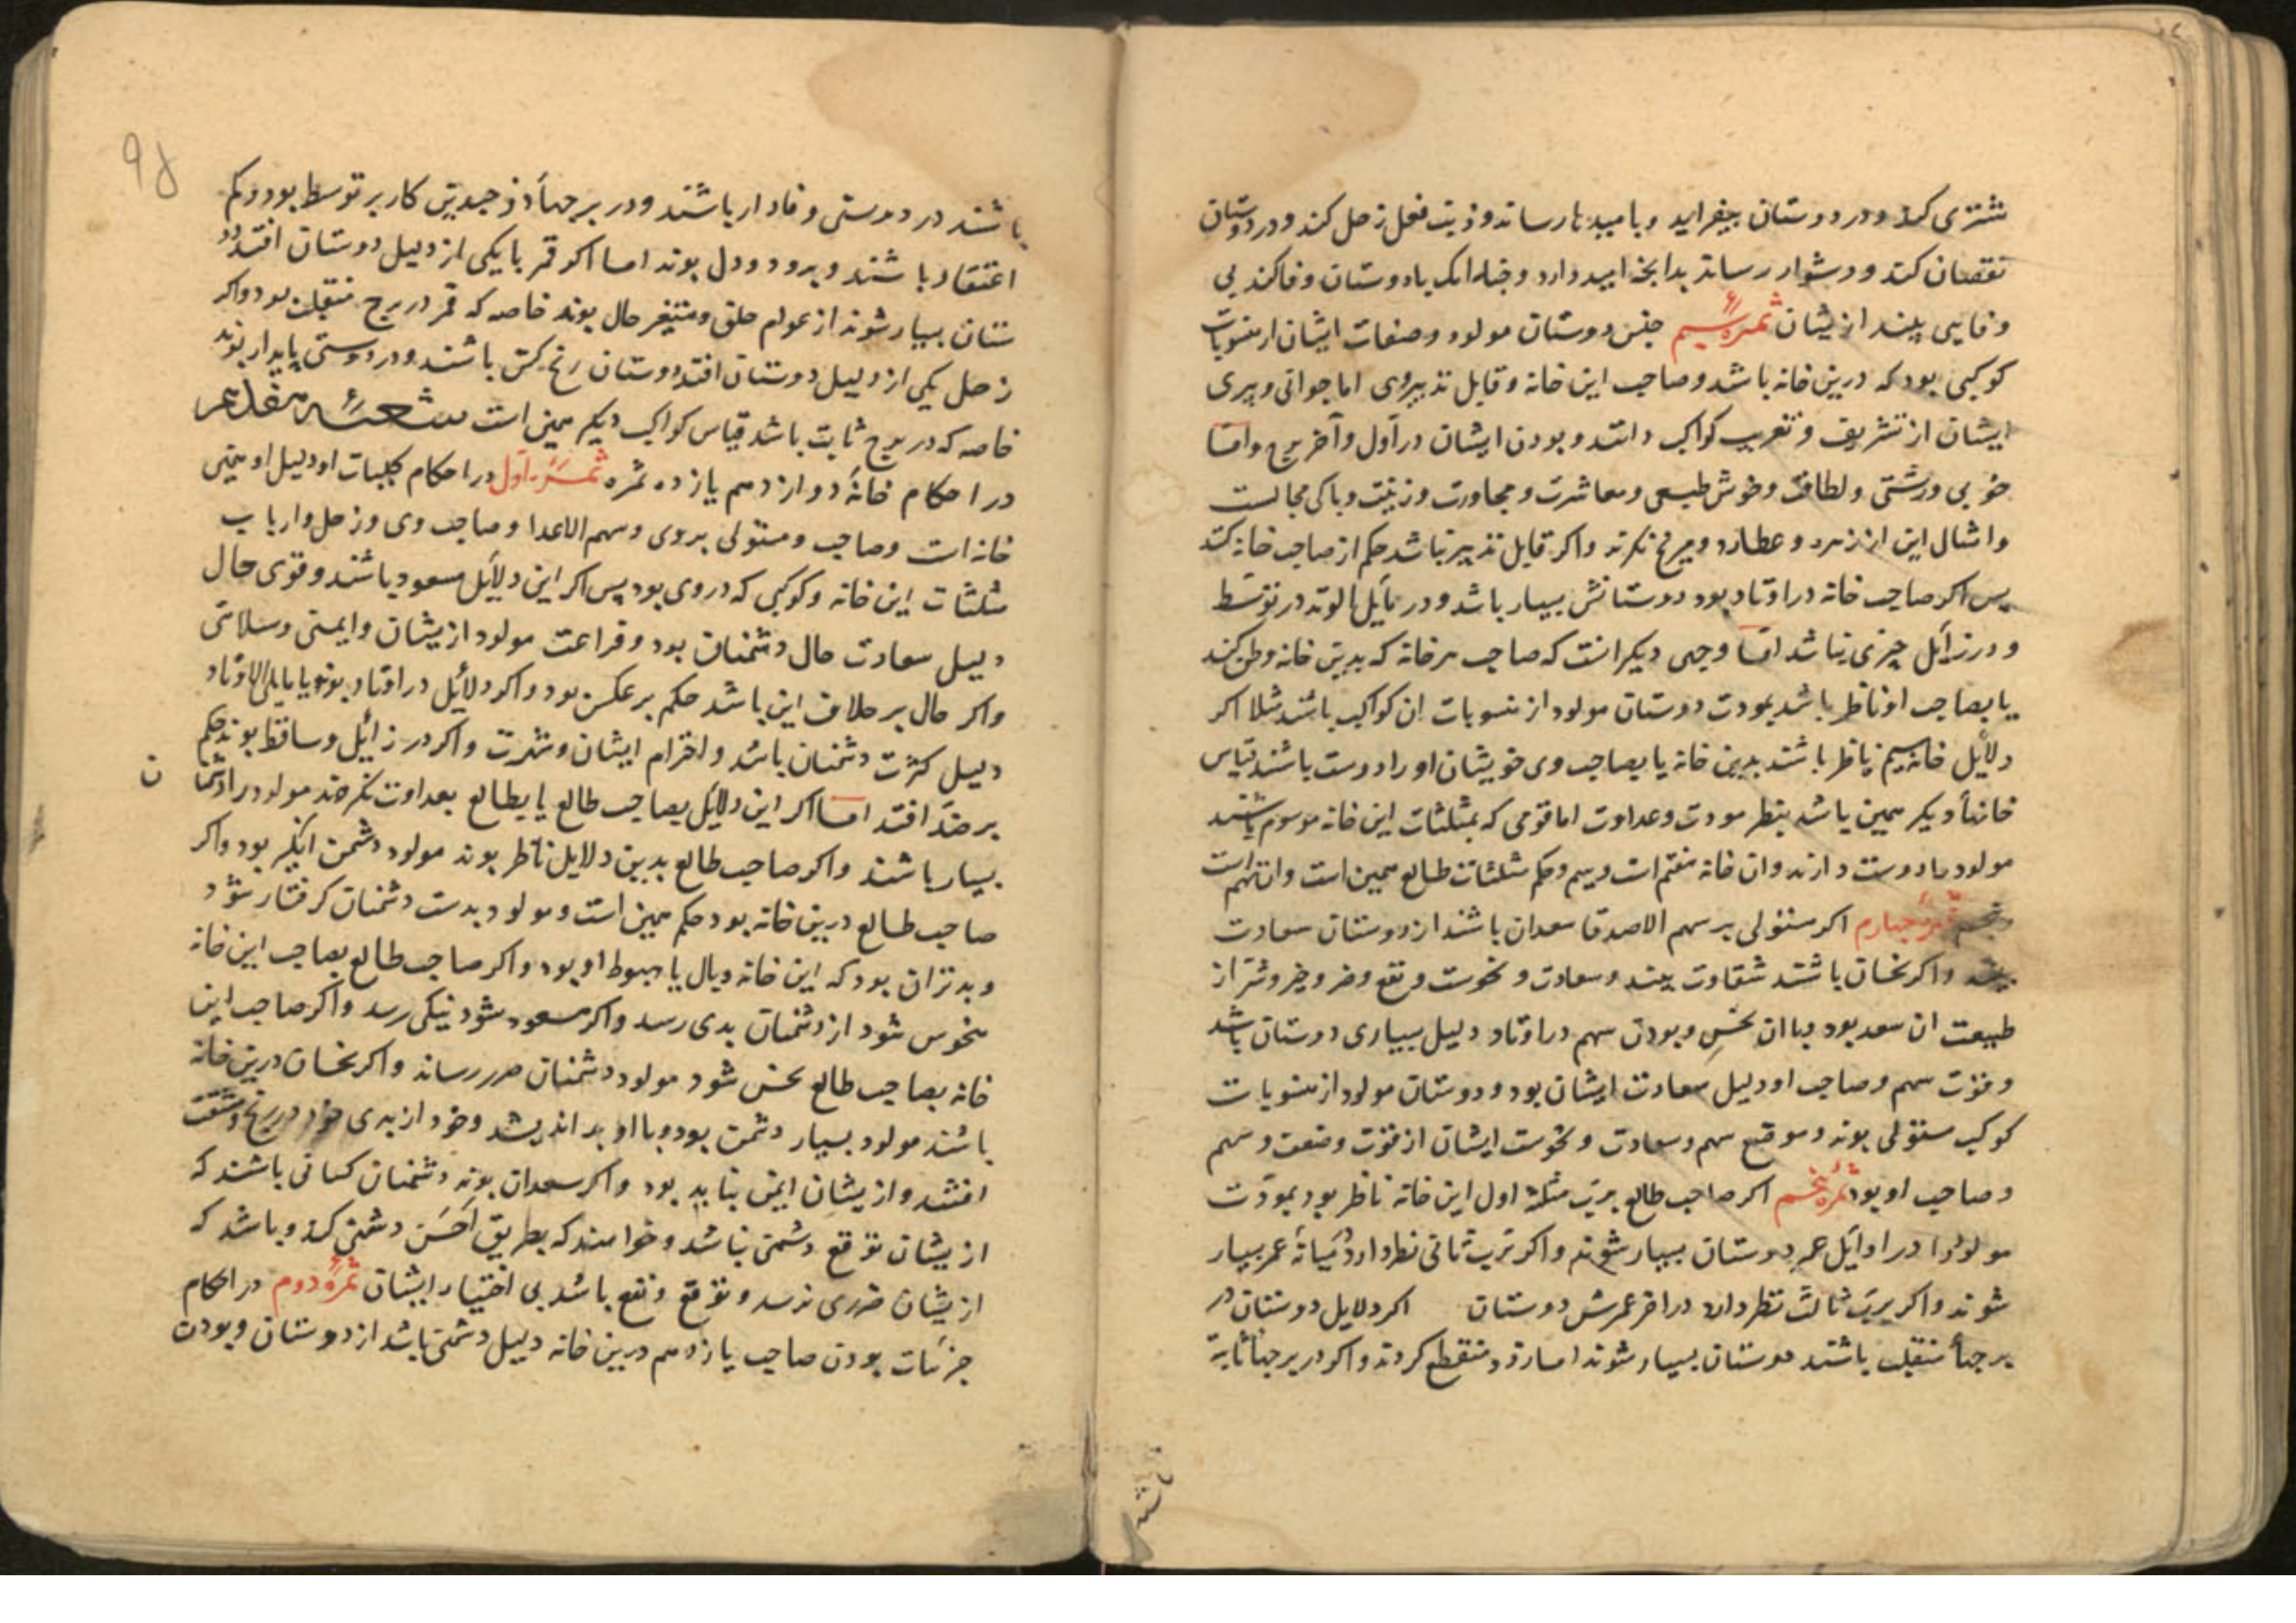 مشتری کند و در دوستان بیفزاید و بامیدها رساند و ذنب فعل زحل کند و در دوستان
نقصان کند و دشوار رساند بدانچه امید دارد و چنانک با دوستان وفا کند بی
وفایی بیند ازیشان ثمرهٔ سیم جنس دوستان مولود و صفات ایشان از منسوبات
کوکبی بود که درین خانه باشد و صاحب این خانه و قابل تدبیر وی اما جوانی و پیری
ایشان از تشریق و تغریب کواکب دانند و بودن ایشان در اول و آخر برج و اما
خوبی و زشتی و لطافت و خوش طبعی و معاشرت و مجاورت و زینت و پاکی مجالست
و امثال این از زهره و عطارد و مریخ نکرند و اکر قابل تدبیر نباشد حکم از صاحب خانه کنند
پس اکر صاحب خانه در اوتاد بود دوستانش بسیار باشد و در مایل الوتد در توسط
و در زایل چیزی نباشد اما وجهی دیکر انست که صاحب هر خانه که بدین خانه و طن کند
یا بصاحب او ناظر باشد بمودت دوستان مولود از منسوبات ان کواکب باشند مثلا اکر
دلایل خانهٔ سیم ناظر باشند بدین خانه یا بصاحب وی خویشان او را دوست باشند قیاس
خانهاء دیکر همین باشد بنظر مودت و عداوت اما قومی که بمثلثات این خانه موسوم باشند
مولود را دوست دارند و ان خانه هفتم است و سیم و حکم مثلثات طالع همین است و ان نهم است
و پنجم ثمرهٔ چهارم اکر مستولی بر سهم الاصدقا سعدان باشند از دوستان سعادت
بیند و اکر نحسان باشند شقاوت بیند و سعادت و نحوست و نفع و ضر و خیر و شر از
طبیعت ان سعد بود یا ان نحس و بودن سهم در اوتاد دلیل بسیاری دوستان باشد
و قوت سهم و صاحب او دلیل سعادت ایشان بود و دوستان مولود از منسوبات
کوکب مستولی بوند و موقع سهم و سعادت و نحوست ایشان از قوت و ضعف و سهم
و صاحب او بود ثمرهٔ پنجم اکر صاحب طالع برب مثلثهٔ اول این خانه ناظر بود بمودت
مولود را در اوایل عمر دوستان بسیار شوند و اکر برب ثانی نظر دارد در میانهٔ عمر بسیار
شوند و اکر برب ثالث نظر دارد در اخر عمرش دوستان اکر دلایل دوستان در
برجهاء منقلب باشند دوستان بسیار شوند اما زود منقطع کردند و اکر در برجهاء ثابته
باشند در دوستی وفادار باشند و در برجهاء ذو جسدین کار بر توسط بود و کم
اعتقاد باشند و برود و دل بوند اما اکر قمر با یکی از دلیل دوستان افتد دو
ستان بسیار شوند از عوام خلق و متغیر حال بوند خاصه که قمر در برج منقلب بود و اکر
زحل یکی از دلیل دوستان افتد دوستان رنج کش باشند و در دوستی پایدار بوند
خاصه که در برج ثابت باشد قیاس کواکب دیکر همین است
در احکام خانهٔ دوازدهم یازده ثمره ثمرهٔ اول در احکام کلیات او دلیل او همین
خانه است و صاحب و مستولی بروی و سهم الاعدا و صاحب وی و زحل و ارباب
مثلثات این خانه و کوکبی که در وی بود پس اکر این دلایل مسعود باشند و قوی حال
دلیل سعادت حال دشمنان بود و فراغت مولود ازیشان و ایمنی و سلامتی
و اکر حال بر خلاف این باشد حکم بر عکس بود و اکر دلایل در اوتاد بوند یا مایلی الاوتاد
دلیل کثرت دشمنان باشد و احترام ایشان و شهرت و اکر در زایل و ساقط بوند حکم
بر ضد افتد اما اکر این دلایل بصاحب طالع یا بطالع بعداوت نکرند مولود را دشمنا ن
بسیار باشند و اکر صاحب طالع بدین دلایل ناظر بوند مولود دشمن انکیز بود و اکر
صاحب طالع درین خانه بود حکم همین است و مولود بدست دشمنان کرفتار شود
و بدتر ان بود که این خانه وبال یا هبوط او بود و اکر صاحب طالع بصاحب این خانه
منحوس شود از دشمنان بدی رسد و اکر مسعود شود نیکی رسد و اکر صاحب این
خانه بصاحب طالع نحس شود مولود دشمنان ضرر رساند و اکر نحسان درین خانه
باشند مولود بسیار دشمن بود و با او بد اندیشد و خود از بدی خود در رنج و مشقت
افتند و ازیشان ایمن نباید بود و اکر سعدان بوند دشمنان کسانی باشند که
ازیشان توقع دشمنی نباشد و خواهند که بطریق احسن دشمنی کند و باشد که
ازیشان ضرری نرسد و توقع و نفع باشد بی اختیار ایشان ثمرهٔ دوم در احکام
جزئیات بودن صاحب یازدهم درین خانه دلیل دشمنی باشد از دوستان و بودن